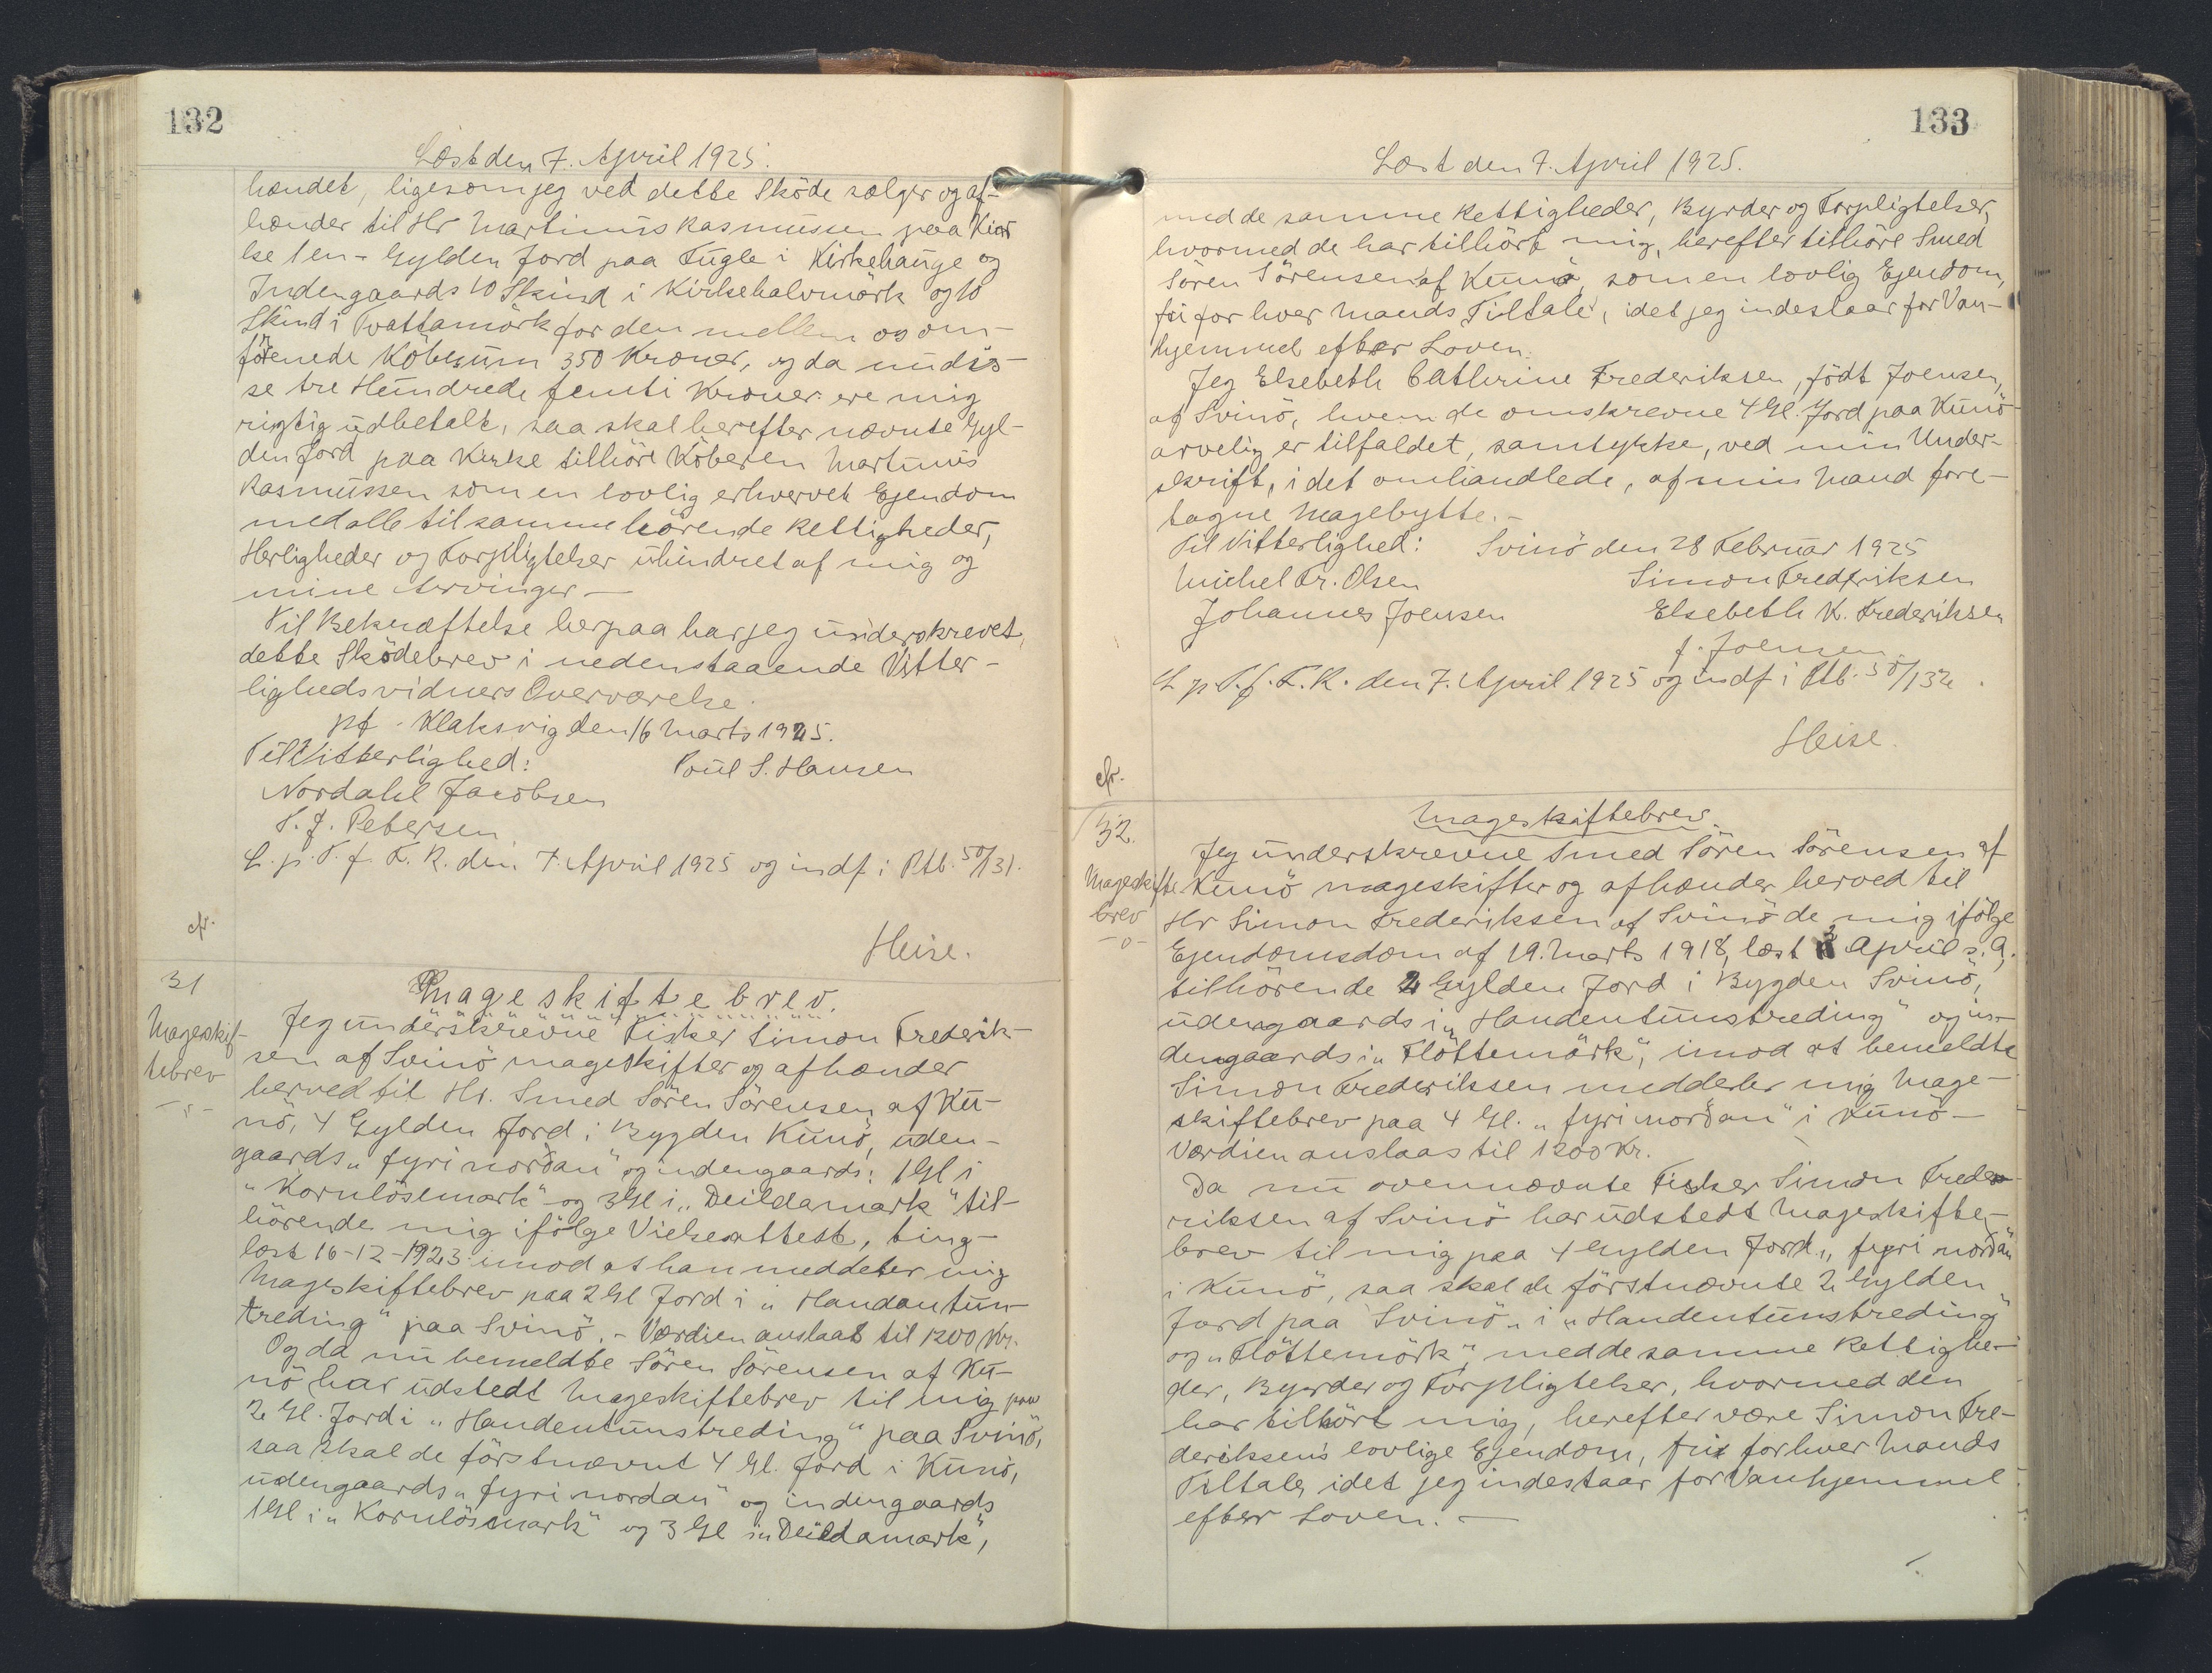 132
Læst den 7. April 1925.
hændet, ligesom jeg ved dette Sköde sælger og af-
hænder til Hr Martinus Rasmussen paa Kir
ke 1 en - Gylden Jord paa Fugle i Kirkehauge og
Indengaards 10 Skind i Kirkehalvmörk og 10
Skind i Tvattamörk for den mellem os om-
förenede Köbesum 350 Kroner, og da nu dis-
se tre Hundrede femti Kroner ere mig
rigtig udbetalt, saa skal herefter nævnte Gyl-
den Jord paa Kirke tilhöre Köberen Martinus
Rasmussen som en lovlig erhvervet Ejendom
med alle til samme hörende Rettigheder,
Herligheder og Forpligtelser uhindret af mig og
mine Arvinger —
Til Bekræftelse herpaa har jeg underskrevet
dette Sködebrev i nedenstaaende Vitter-
lighedsvidners Overværelse.
pt. Klaksvig den 16 Marts 1925.
Til Vitterlighed: Poul S. Hansen
Nordahl Jacobsen
S. J. Petersen
L. p. T. f. F. R. den 7. April 1925 og indf i Ptb. 50/131.
cfr.
Heise.
31
Mageskiftebrev.
Mageskif-
tebrev
Jeg underskrevne Fisker Simon Frederik-
sen af Svinö mageskifter og afhænder
herved til Hr. Smed Sören Sörensen af Ku-
nö, 4 Gylden Jord i Bygden Kunö, uden-
gaards „fyri norðan" og indengaards: 1 Gl i
„Kornlösmark" og 3 Gl i „Deildamark" til-
hörende mig ifölge Vielsesattest, ting-
læst 16-12-1923 imod at han meddeler mig
Mageskiftebrev paa 2 Gl Jord i „Handantun-
treding" paa Svinö. - Værdien anslaas til 1200 Kr.
Og da nu bemeldte Sören Sörensen af Ku-
nö har udstedt Mageskiftebrev til mig paa
2 Gl. Jord i „Handentunstreding" paa Svinö,
saa skal de förstnævnt 4 Gl. Jord i Kunö,
udengaards „fyri nordan" og indengaards
1 Gl i „Kornlösmark" og 3 Gl i „Deildamark",
133
Læst den 7. April 1925.
med de samme Rettigheder, Byrder og Forpligtelser,
hvormed de har tilhört mig, herefter tilhöre Smed
Sören Sörensen af Kunö, som en lovlig Ejendom,
fri for hver Mands Tiltale, idet jeg indestaar for Van-
hjemmel efter Loven.
Jeg Elsebeth Cathrine Frederiksen, födt Joensen,
af Svinö, hvem de omskrevne 4 Gl. Jord paa Kunö
arvelig er tilfaldet, samtykke, ved min Under-
skrift, i det omhandlede, af min Mand fore-
tagne Magebytte. -
Til Vitterlighed: Svinö den 28 Februar 1925
Michel Fr. Olsen Simon Frederiksen
Johannes Joensen Elsebeth K. Frederiksen
f. Joensen
L p T. f. F. R. den 7. April 1925 og indf i Ptb. 50/132.
Heise.
cfr.
Mageskiftebrev.
32.
Mageskifte
brev
-0-
Jeg underskrevne Smed Sören Sörensen af
Kunö mageskifter og afhænder herved til
Hr Simon Frederiksen af Svinö de mig ifölge
Ejendomsdom af 19. Marts 1918, læst April s. A.
tilhörende 2 Gylden Jord i Bygden Svinö,
udengaards i „Handentunstreding" og in-
dengaards i „Flöttemörk", imod at bemeldte
Simon Frederiksen meddeler mig Mage-
skiftebrev paa 4 Gl. „fyri norðan" i Kunö -
Værdien anslaas til 1200 Kr.
Da nu ovennævnte Fisker Simon Frede-
riksen af Svinö har udstedt Mageskifte-
brev til mig paa 4 Gylden Jord „fyri norðan"
i Kunö, saa skal de förstnævnte 2 Gylden
Jord paa Svinö „i „Handentunstreding"
og „Flöttemörk", med de samme Rettighe-
der, Byrder og Forpligtelser, hvormed den
har tilhört mig, herefter være Simon Fre-
deriksens lovlige Ejendom, fri for hver Mands
Tiltale, idet jeg indestaar for Vanhjemmel
efter Loven. —